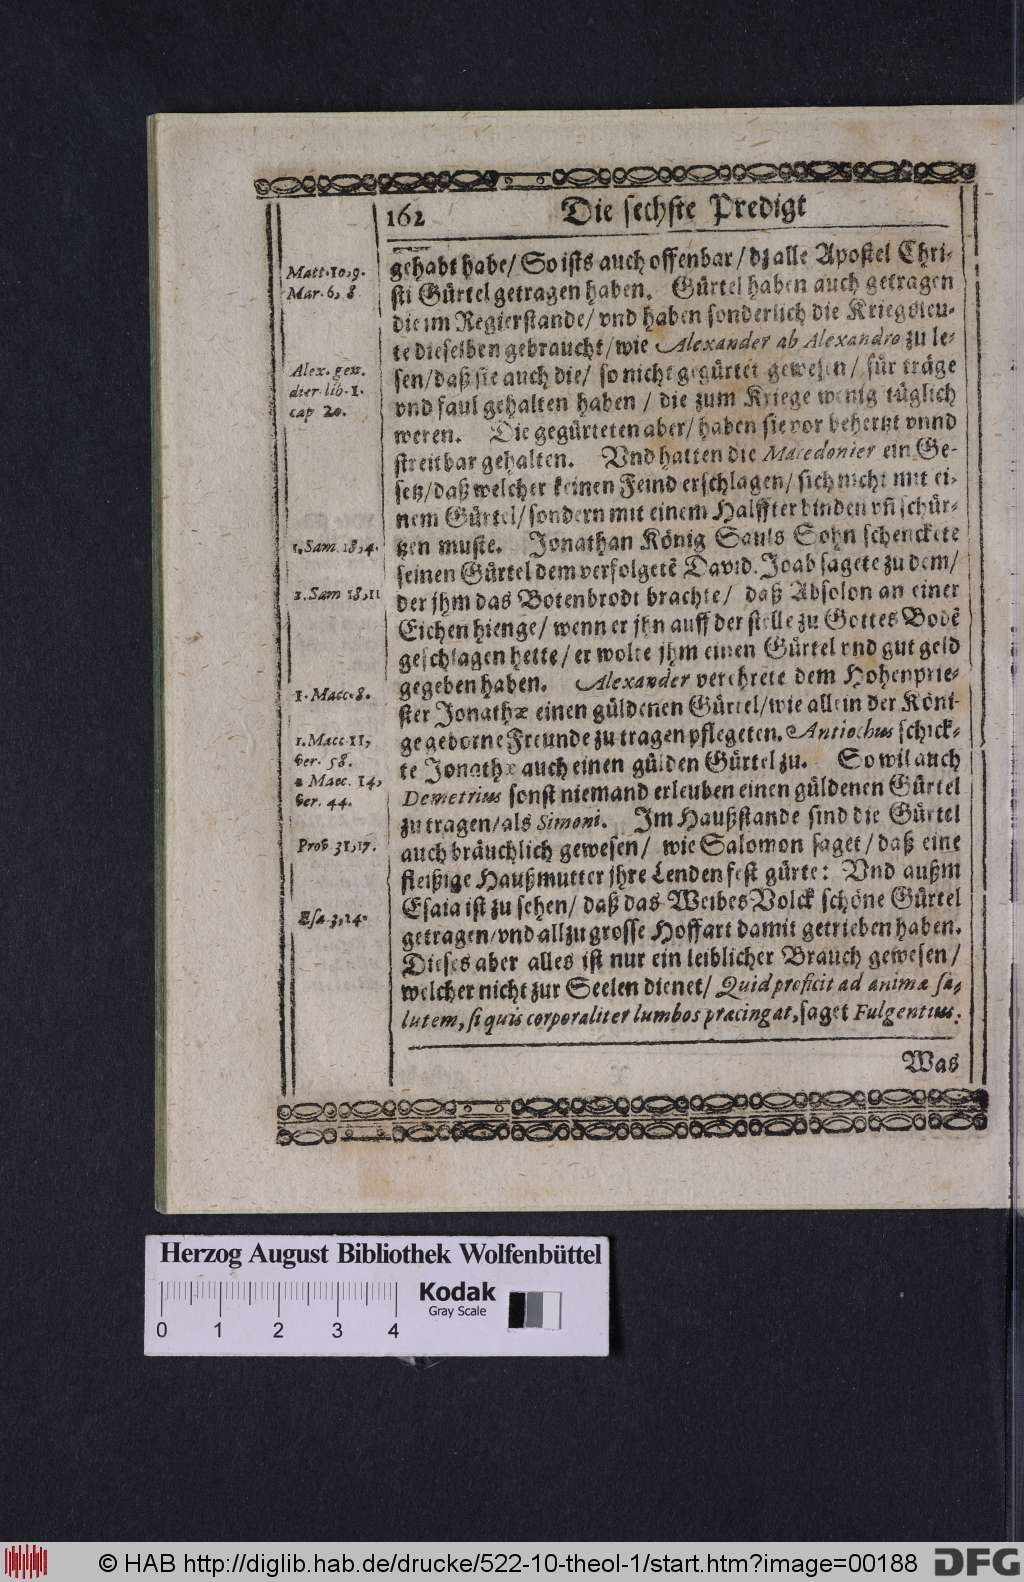 162 Die sechste Predigt
gehabt habe/ So ists auch offenbar/ dz alle Apostel Chri-
sti Gürtel getragen haben. Gürtel haben auch getragen
die im Regierstande/ vnd haben sonderlich die Kriegsleu-
te dieselben gebraucht/ wie Alexander ab Alexandro zu le-
sen/ daß sie auch die/ so nicht gegürtet gewesen/ für träge
vnd faul gehalten haben/ die zum Kriege wenig tüglich
weren. Die gegürteten aber/ haben sie vor behertzt vnnd
streitbar gehalten. Vnd hatten die Macedonier ein Ge-
setz/ daß welcher keinen Feind erschlagen/ sich nicht mit ei-
nem Gürtel/ sondern mit einem Halffter binden vñ schür-
tzen muste. Jonathan König Sauls Sohn schenckete
seinen Gürtel dem verfolgetẽ David. Joab sagete zu dem/
der jhm das Botenbrodt brachte/ daß Absolon an einer
Eichen hienge/ wenn er jhn auff der stelle zu Gottes Bodẽ
geschlagen hette/ er wolte jhm einen Gürtel vnd gut geld
gegeben haben. Alexander verehrete dem Hohenprie-
ster Jonathæ einen güldenen Gürtel/ wie allein der Köni-
ge geborne Freunde zu tragen pflegeten. Antiochus schick-
te Jonathæ auch einen gülden Gürtel zu. So wil auch
Demetrius sonst niemand erleuben einen güldenen Gürtel
zu tragen/ als Simoni. Im Haußstande sind die Gürtel
auch bräuchlich gewesen/ wie Salomon saget/ daß eine
fleißige Haußmutter jhre Lenden fest gürte: Vnd außm
Esaia ist zu sehen/ daß das Weibes Volck schöne Gürtel
getragen/ vnd allzu grosse Hoffart damit getrieben haben.
Dieses aber alles ist nur ein leiblicher Brauch gewesen/
welcher nicht zur Seelen dienet/ Quid proficit ad animæ sa-
lutem, si quis corporaliter lumbos præcingat, saget Fulgentius.
Was
Matt. 10,9.
Mar. 6, 8
Alex. gen.
dier. lib. 1.
cap 20.
1. Sam. 18,4.
2. Sam 18,11
1. Macc. 8.
1. Macc. 11,
ver. 58.
1 Macc. 14,
ver. 44.
Prov. 31,17.
Esa. 3,24.
Herzog August Bibliothek Wolfenbüttel
Kodak
Gray Scale
0 1 2 3 4
© HAB http://diglib.hab.de/drucke/522-10-theol-1/start.htm?image=00188
DFG